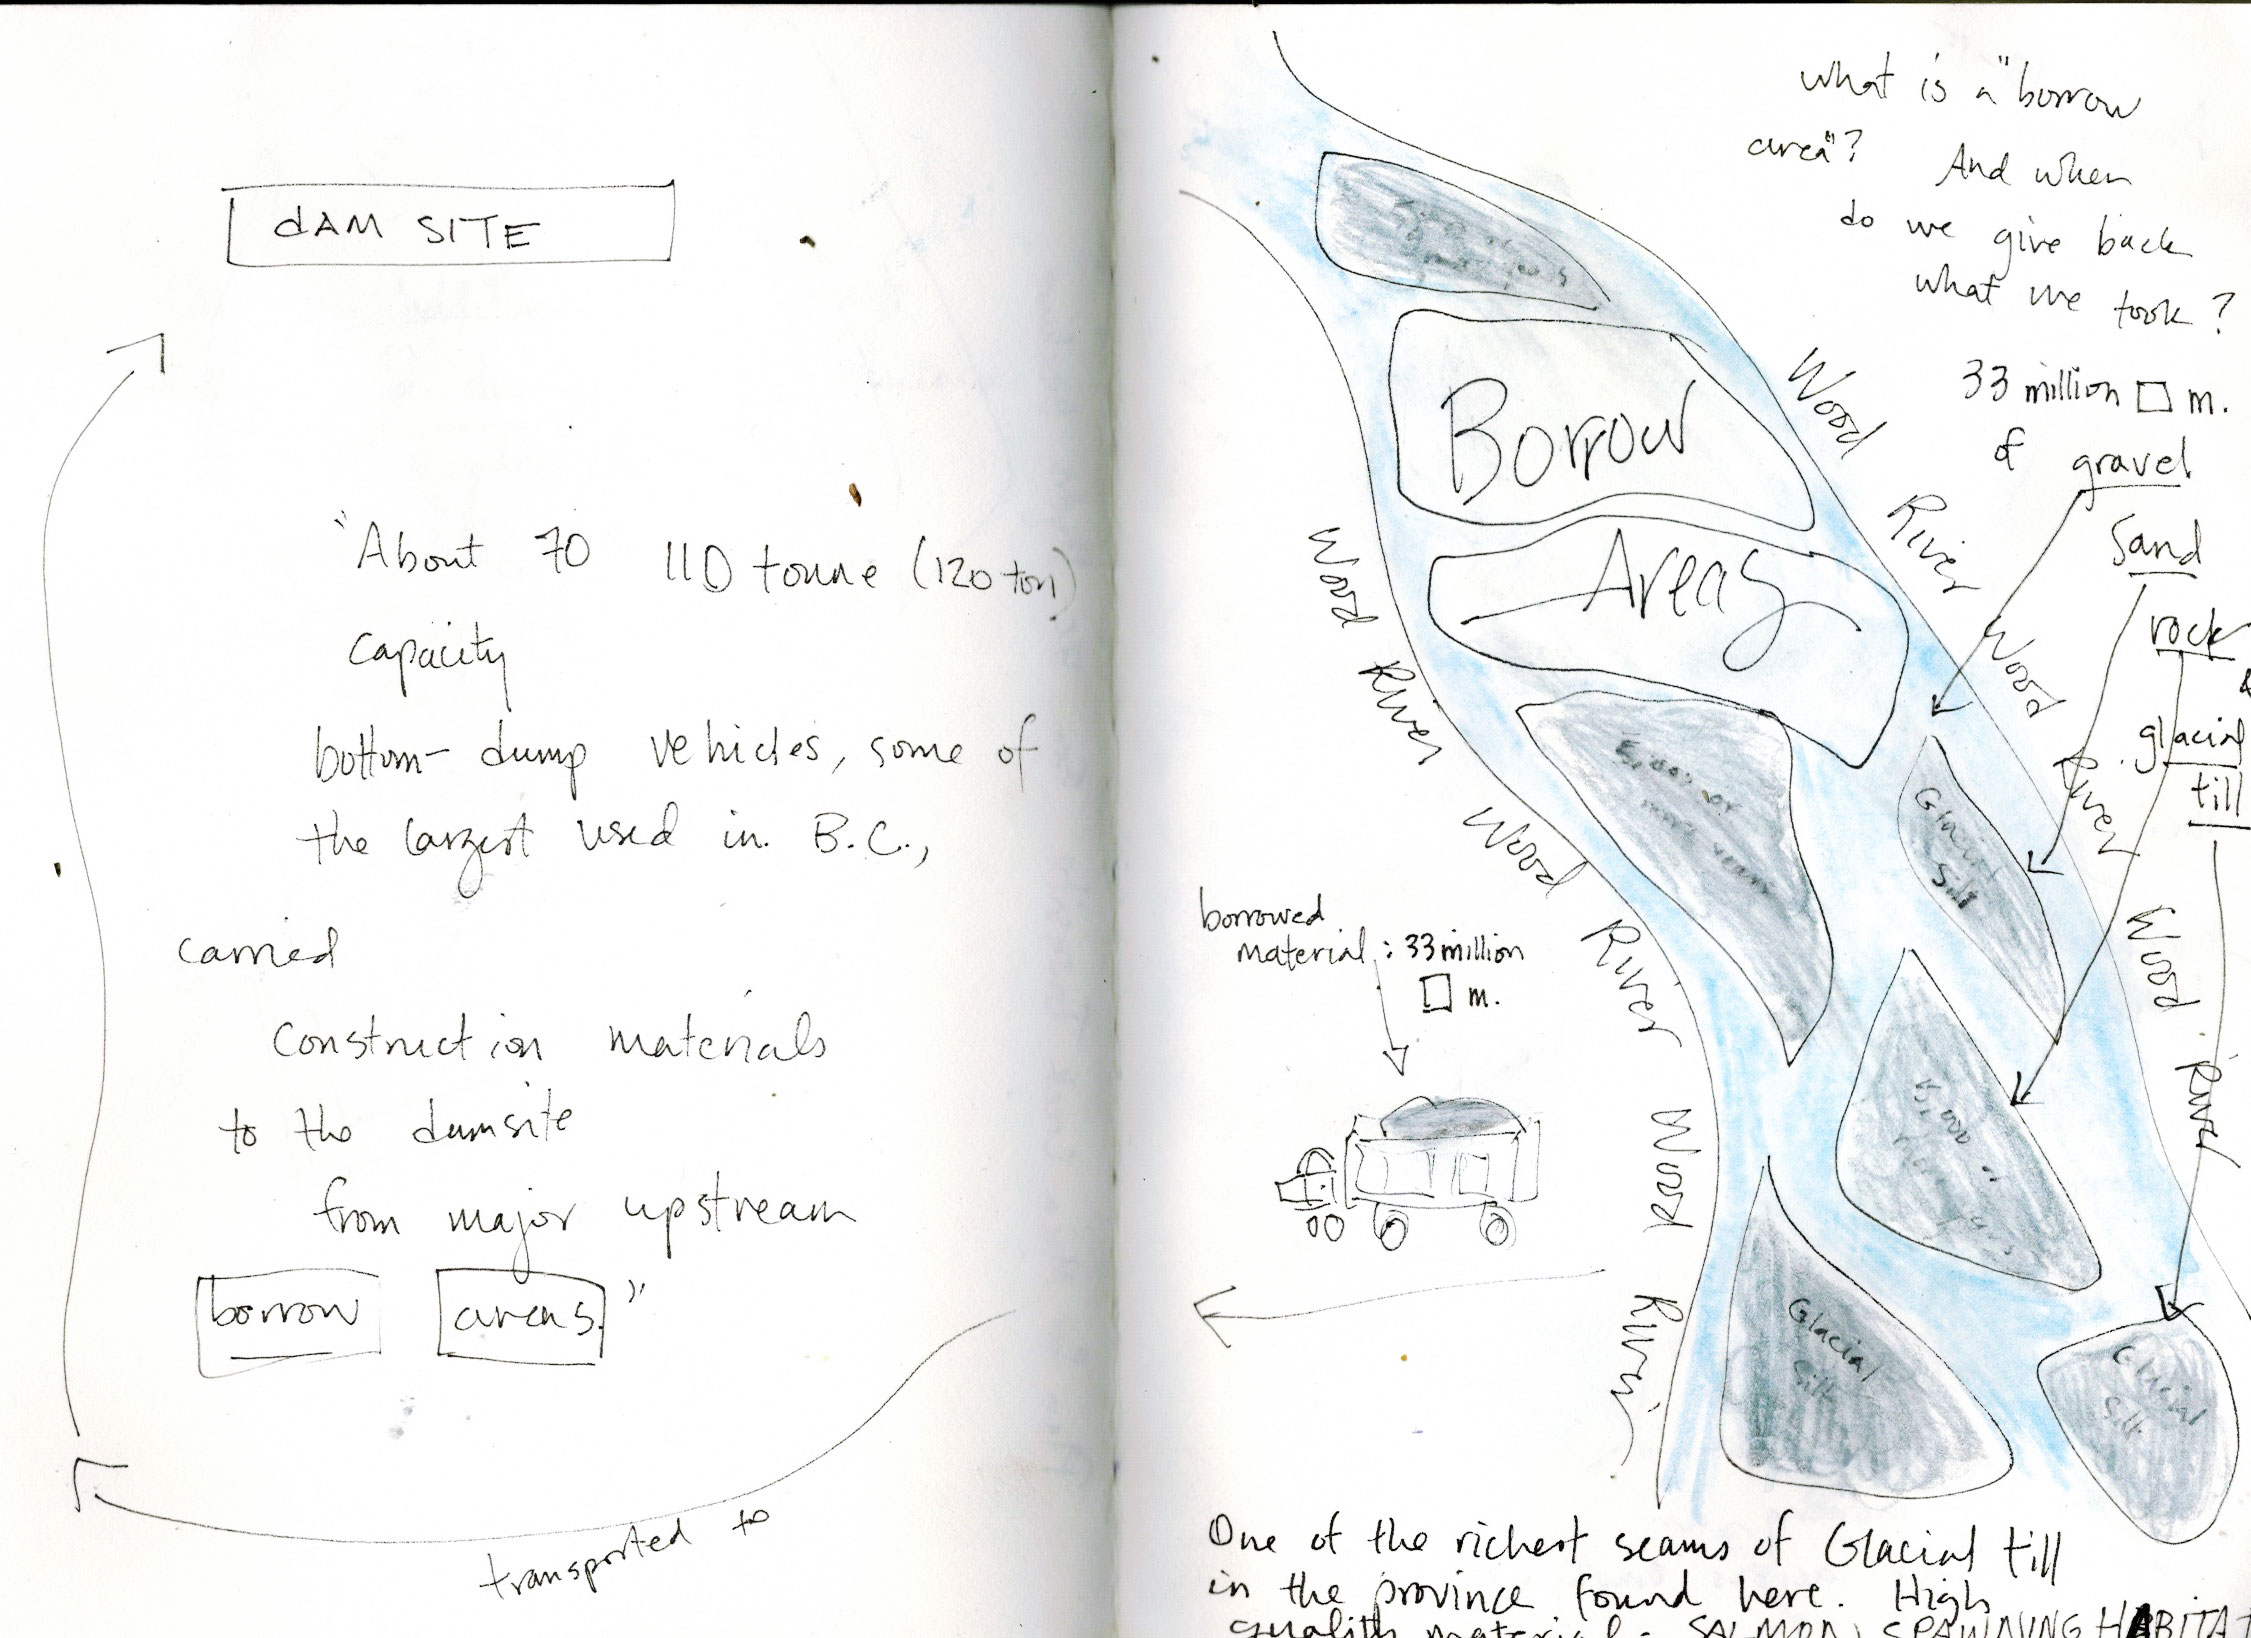 dAM SITE
"About 70 110 tonne (120 ton)
capacity
bottom-dump vehicles, some of
the largest used in B.C.,
carried
construction materials
to the damsite
from major upstream
borrow areas."
transported to
what is a "borrow
area"? And when
do we give back
what we took?
33 million □ m.
of gravel
sand
rock
&
glacial
till
Borrow
Areas
Wood River Wood River Wood River
Wood River Wood River Wood River
5,000 or
more years
Glacial
Silt
5,000
Glacial
Silt
Glacial
Silt
borrowed
material: 33 million
□ m.
One of the richest seams of Glacial till
in the province found here. High
quality material - SALMON SPAWNING HABITAT